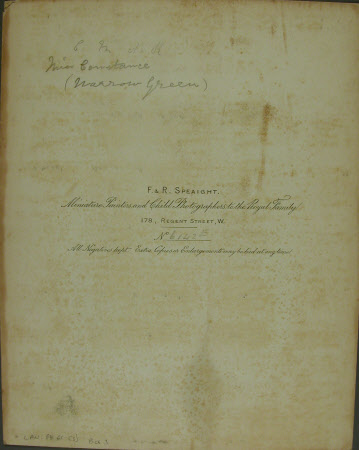 Miss Constance
(Narrow Green)
F & R. SPEAIGHT.
Miniature Painters and Child Photographers to the Royal Family.
178, REGENT STREET, W.
No
All Negatives kept. Extra Copies or Enlargements may be had at any time.